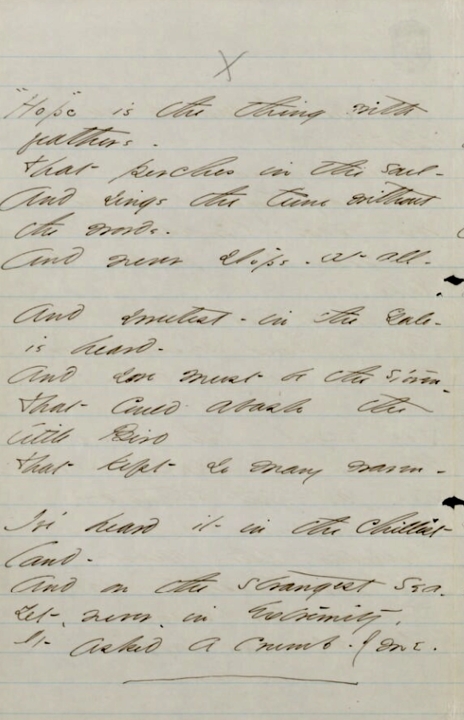 X
"Hope" is the thing with
feathers -
That perches in the soul -
And sings the tune without
the words -
And never stops - at all -
And sweetest - in the Gale -
is heard -
And sore must be the storm -
That could abash the
little Bird
That kept so many warm -
I've heard it - in the chillest
land -
And on the strangest Sea -
Yet, never, in Extremity,
It asked a crumb - of me.